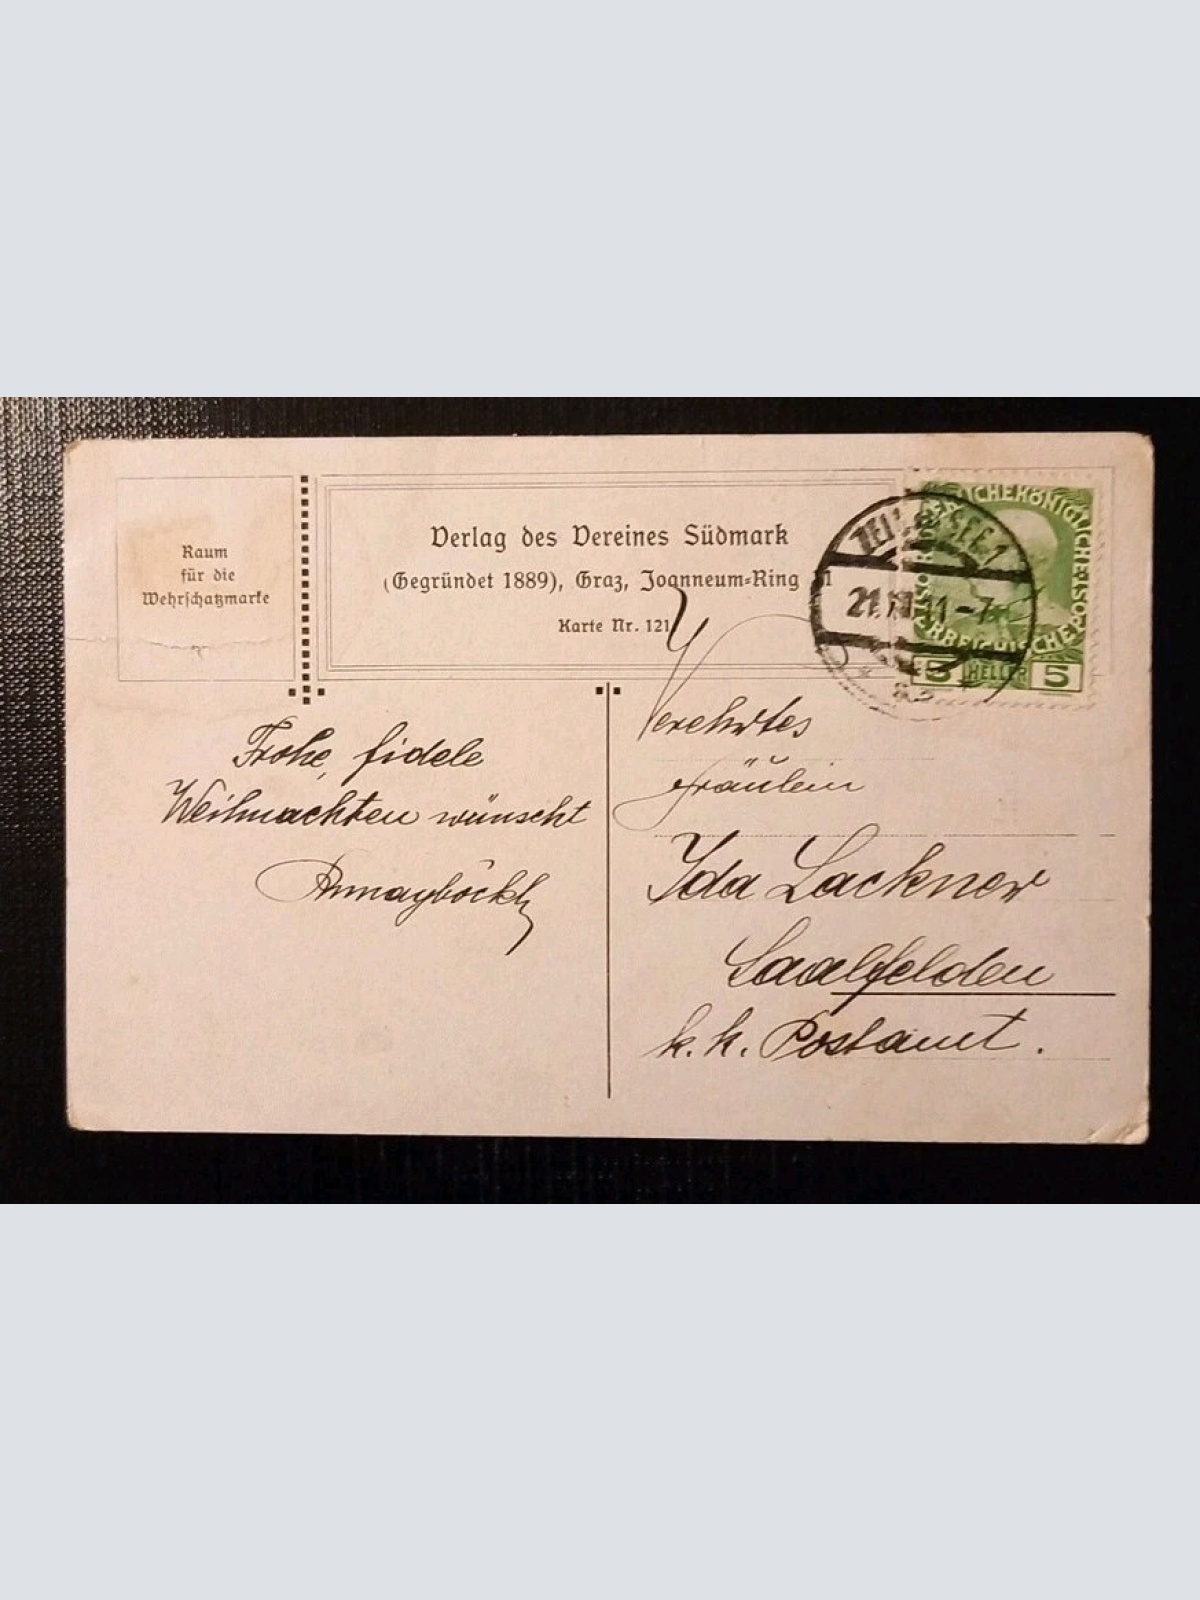 Raum
für die
Wehrschatzmarke
Verlag des Vereines Südmark
(Gegründet 1889), Graz, Joanneum=Ring 11
Karte Nr. 121
ZELL a/SEE 1
21.XII.11-7
5 HELLER 5
Frohe, fidele
Weihnachten wünscht
Verehrtes
Fräulein
Ida Lackner
Saalfelden
k. k. Postamt.